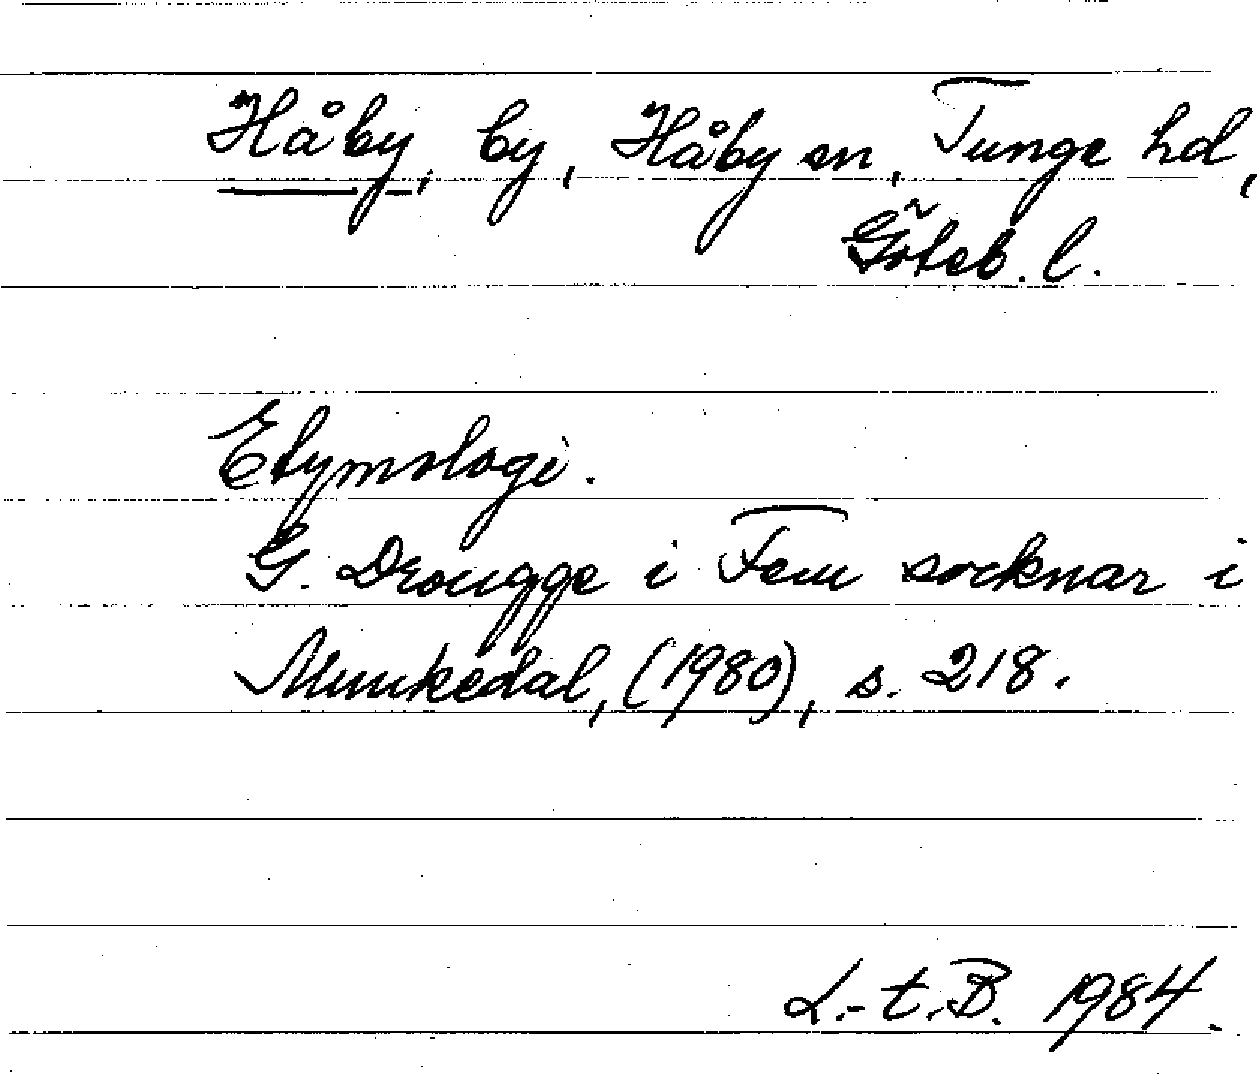 Håby, by, Håby sn, Tunge hd,
Göteb. l.
Etymologi.
G. Drougge i Fem socknar i
Munkedal, (1980), s. 218.
L.-t.B. 1984.